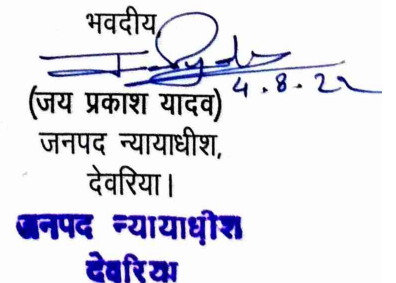 भवदीय
4.8.22
(जय प्रकाश यादव)
जनपद न्यायाधीश,
देवरिया।
जनपद न्यायाधीश
देवरिया